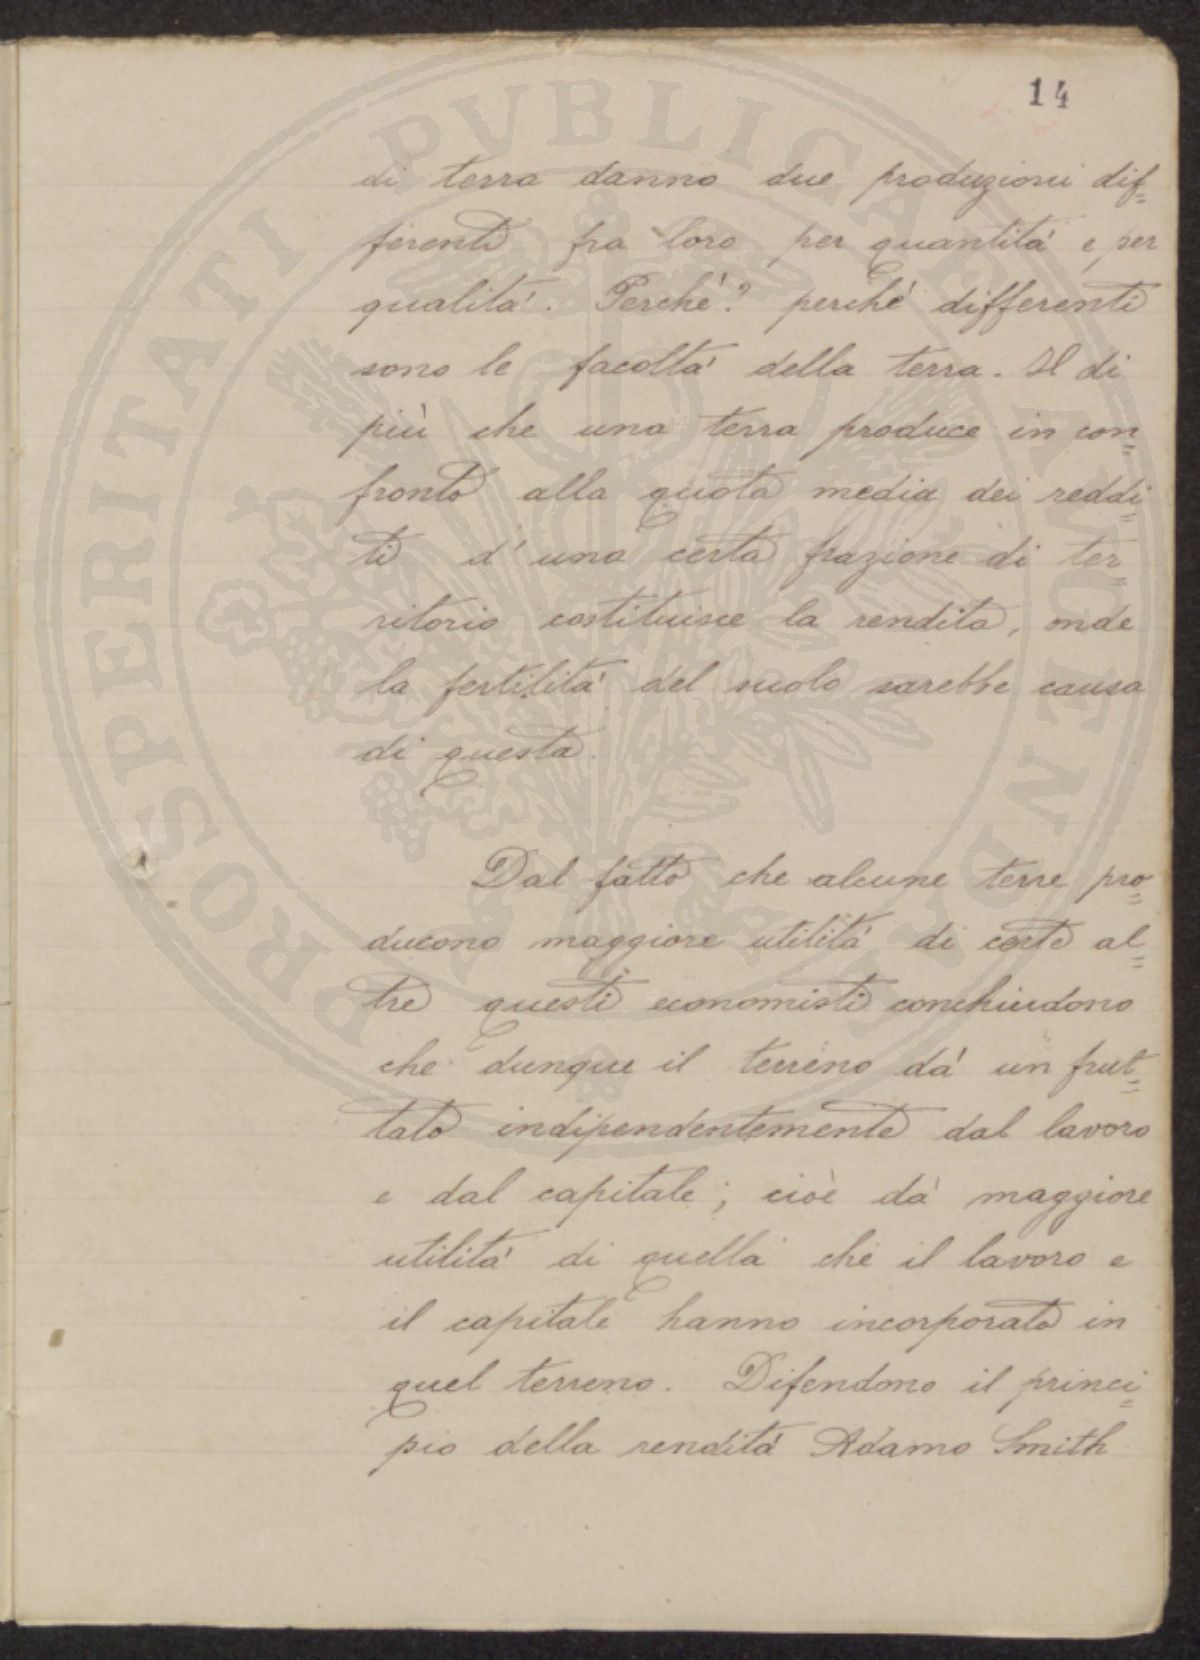 14
di terra danno due produzioni dif=
ferenti fra loro per quantità e per
qualità. Perchè? perchè differenti
sono le facoltà della terra. Il di
più che una terra produce in con=
fronto alla quota media dei reddi=
ti d'una certa frazione di ter=
ritorio costituisce la rendita, onde
la fertilità del suolo sarebbe causa
di questa.
Dal fatto che alcune terre pro=
ducono maggiore utilità di certe al=
tre questi economisti conchiudono
che dunque il terreno dà un frut=
tato indipendentemente dal lavoro
e dal capitale; cioè dà maggiore
utilità di quella che il lavoro e
il capitale hanno incorporato in
quel terreno. Difendono il princi=
pio della rendita Adamo Smith
PROSPERITATI PVBLICAE AVGENDAE